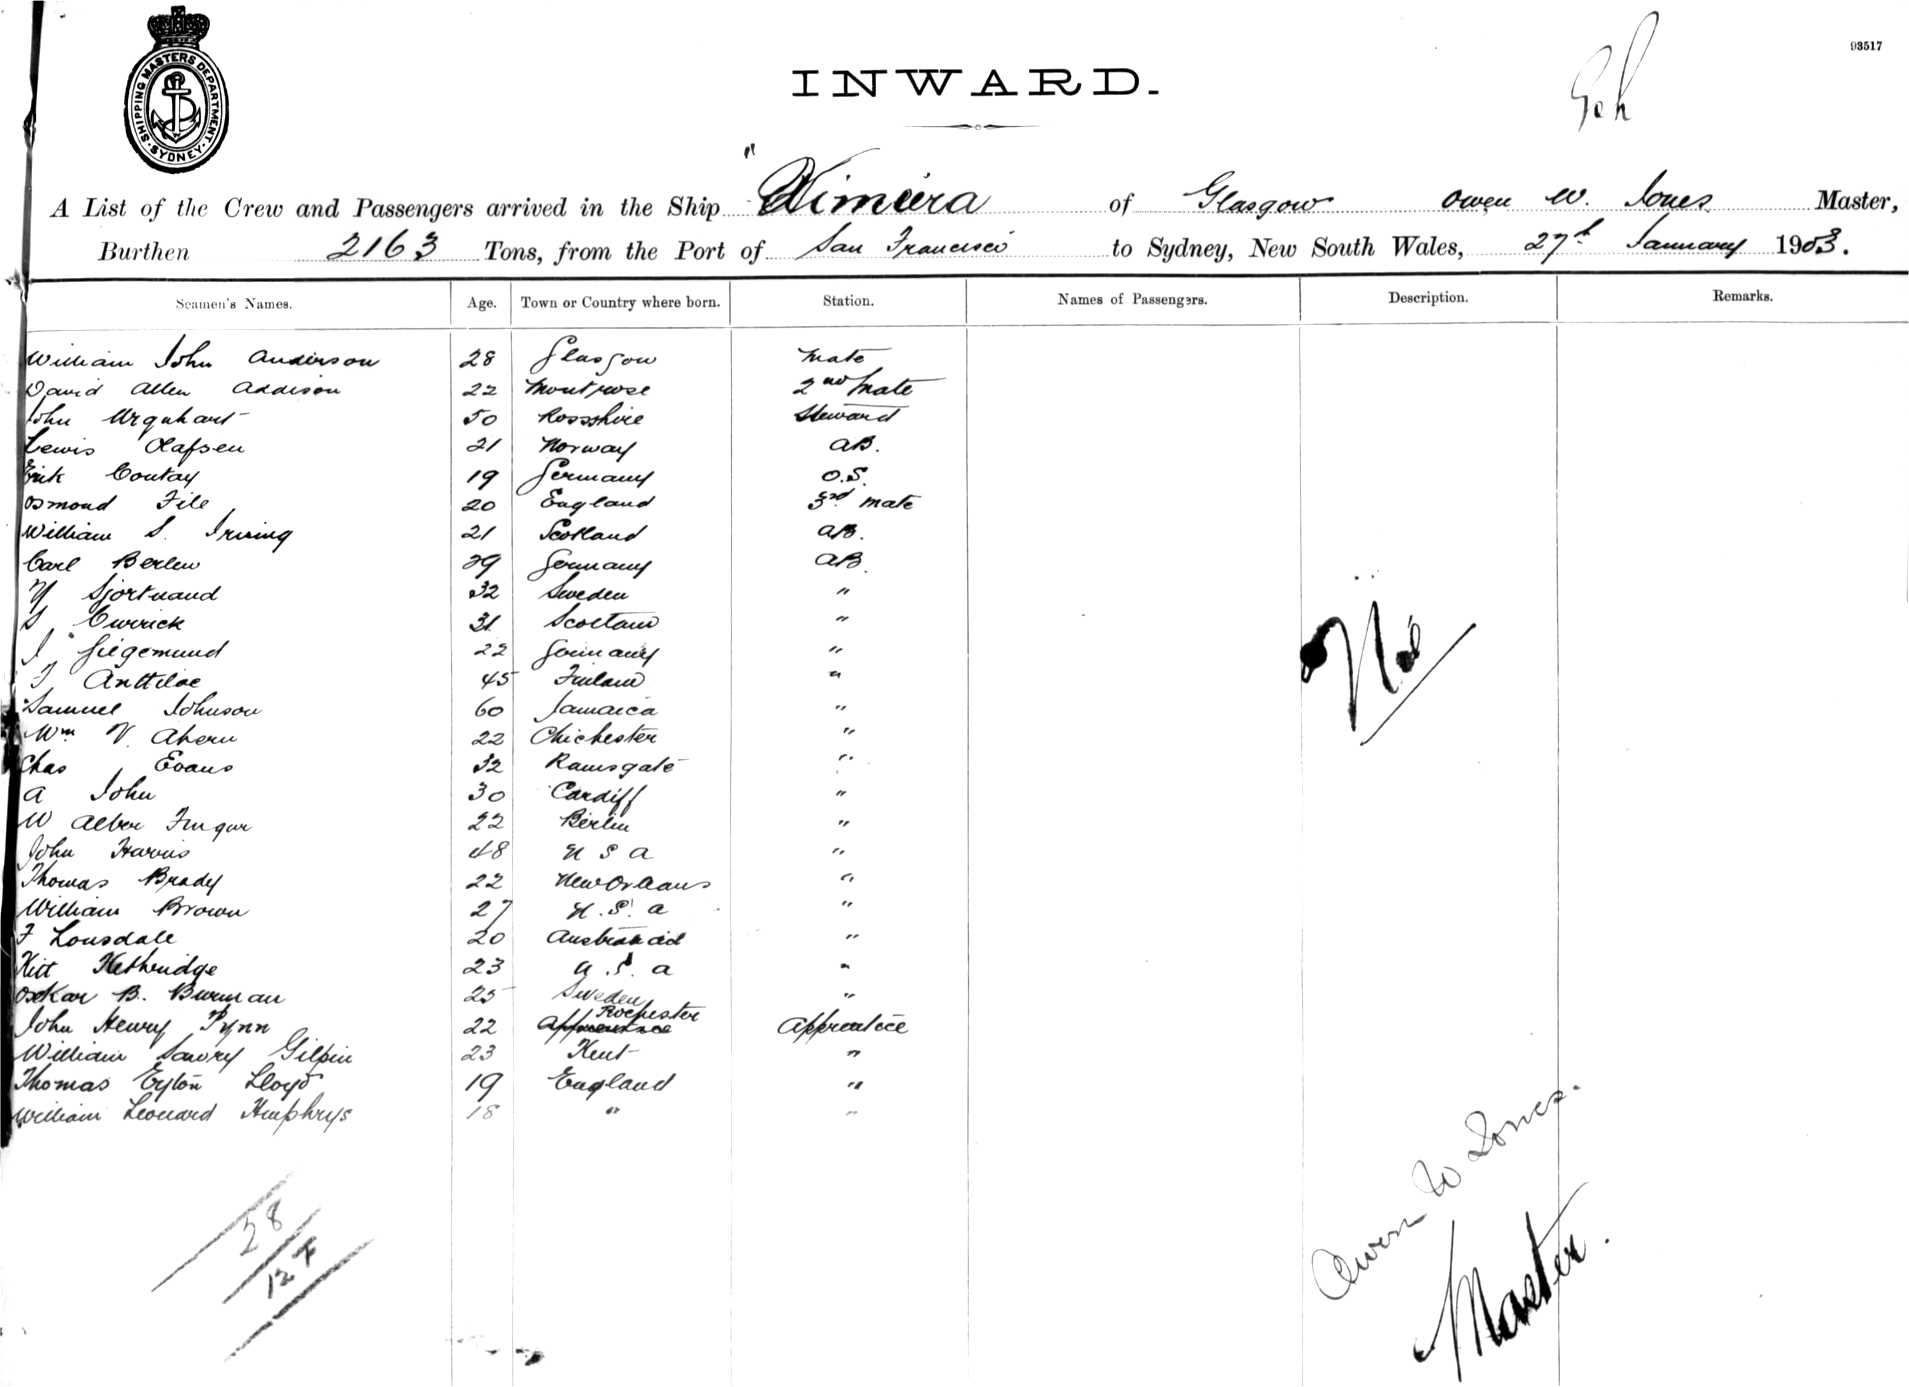 93517
SHIPPING MASTERS DEPARTMENT.
SYDNEY
INWARD.
A List of the Crew and Passengers arrived in the Ship "Dimsdale of Glasgow Owen W. Jones Master,
Burthen 2163 Tons, from the Port of San Francisco to Sydney, New South Wales, 27th January 1903.
Seamen's Names. Age. Town or Country where born. Station. Names of Passengers. Description. Remarks.
William John Anderson 28 Glasgow Mate
David Allen Addison 22 Montrose 2nd Mate
John Urquhart 50 Rossshire Steward
Lewis Olafsen 21 Norway AB.
Erik Coutay 19 Germany O.S.
Osmond File 20 England 3rd Mate
William S. Irving 21 Scotland AB.
Carl Berlew 29 Germany AB.
Sjortnand 32 Sweden "
Currick 31 Scotland "
J Siegemund 22 Germany "
Anttilae 45 Finland "
Samuel Johnson 60 Jamaica "
Wm V. Ahern 22 Chichester "
Chas Evans 32 Ramsgate "
A John 30 Cardiff "
W Alber 22 Berlin "
John Harris 48 U S A "
Thomas Brady 22 New Orleans "
William Brown 27 U. S. A "
F Lonsdale 20 "
Kitt Kethridge 23 U. S. A "
Oskar B. Burman 25 Sweden "
John Henry Pynn 22 Apprentice Rochester Apprentice
William Savory Gilpin 23 Kent "
Thomas Eyton Lloyd 19 England "
William Leonard Humphrys 18 " "
28
Owen W Jones.
Master.